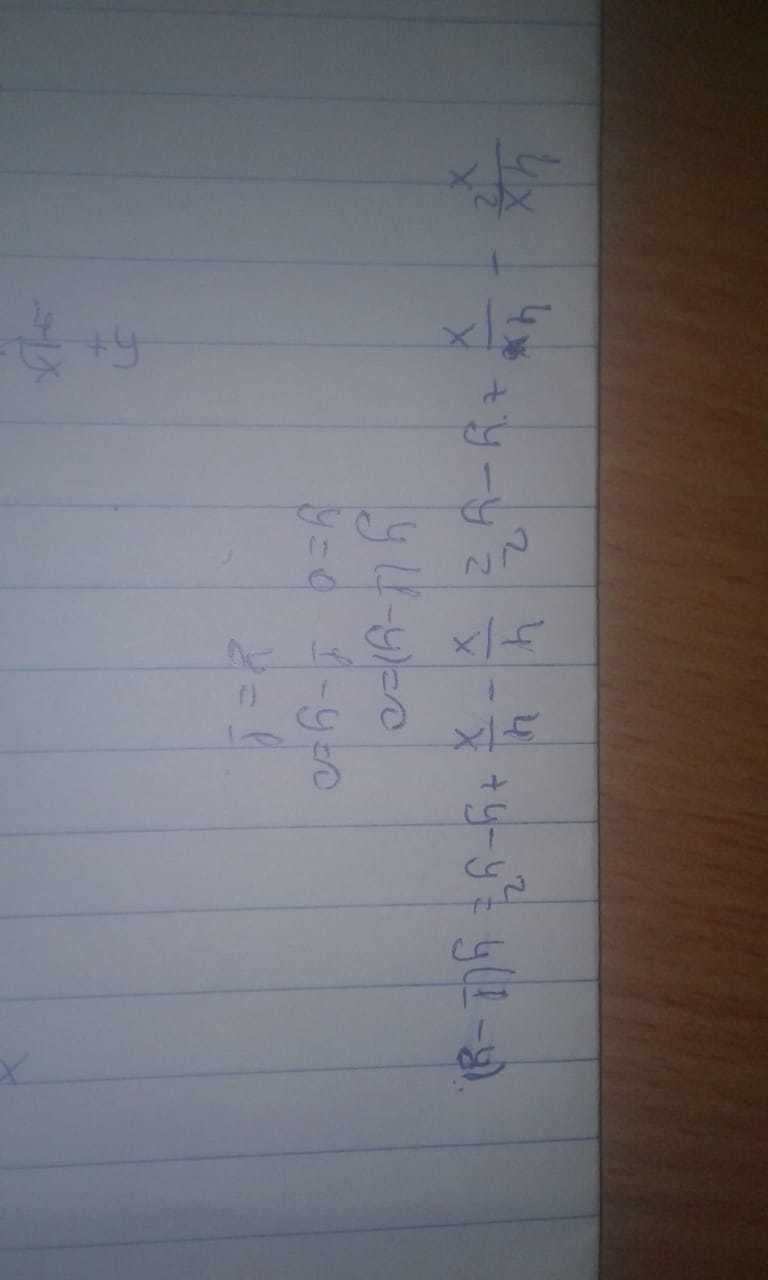 4x/x² - 4/x + y - y² = 4/x - 4/x + y - y² = y(1-y)
y(1-y)=0
y=0 1-y=0
y=1
x